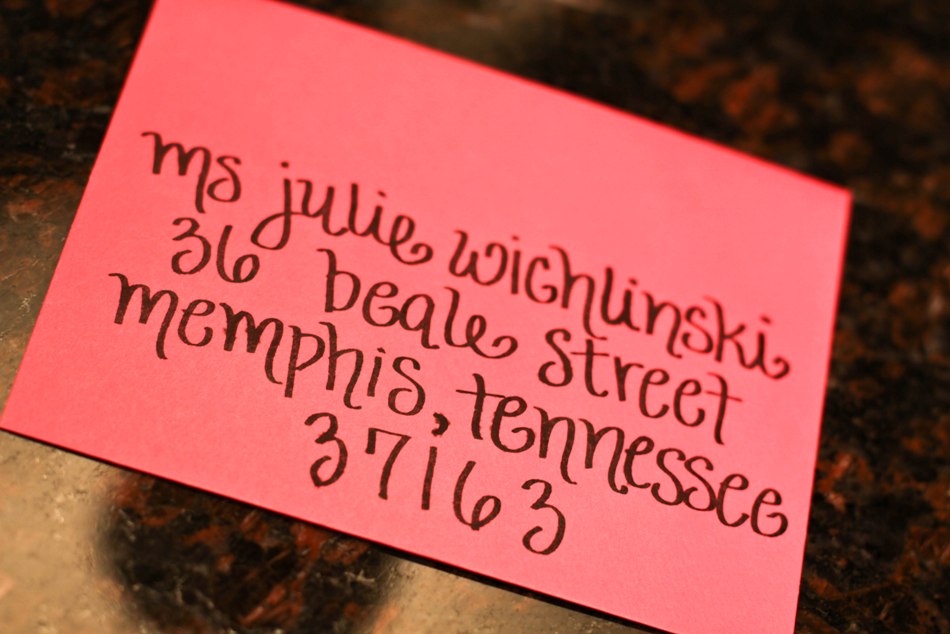 ms julie wichlinski
36 beale street
memphis, tennessee
37163